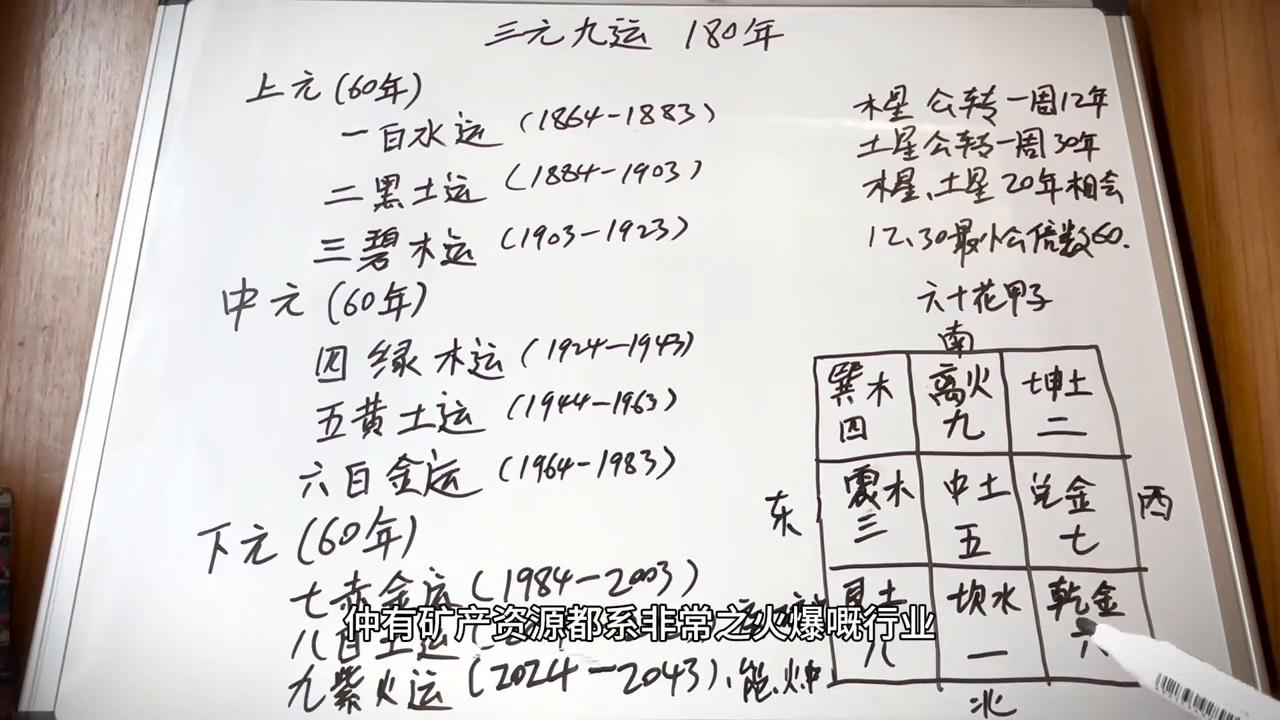 三元九运 180年
上元(60年)
一白水运 (1864-1883)
二黑土运 (1884-1903)
三碧木运 (1903-1923)
中元(60年)
四绿木运 (1924-1943)
五黄土运 (1944-1963)
六白金运 (1964-1983)
下元(60年)
七赤金运 (1984-2003)
八白土运
九紫火运 (2024-2043)、能
木星 公转一周12年
土星公转一周30年
木星、土星 20年相会
12、30最小公倍数60.
六十花甲子
南
巽木 离火 坤土
四 九 二
东 震木 中土 兑金 西
三 五 七
艮土 坎水 乾金
八 一 六
北
仲有矿产资源都系非常之火爆嘅行业